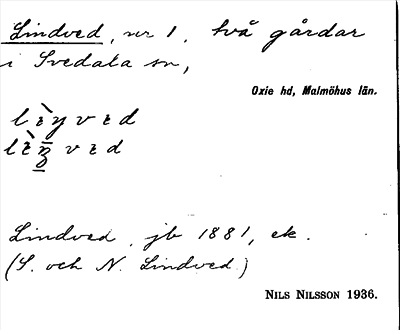 Lindved, nr 1, två gårdar
i Svedala sn,
Oxie hd, Malmöhus län.
Lindved, jb 1881, ek.
(S. och N. Lindved)
NILS NILSSON 1936.